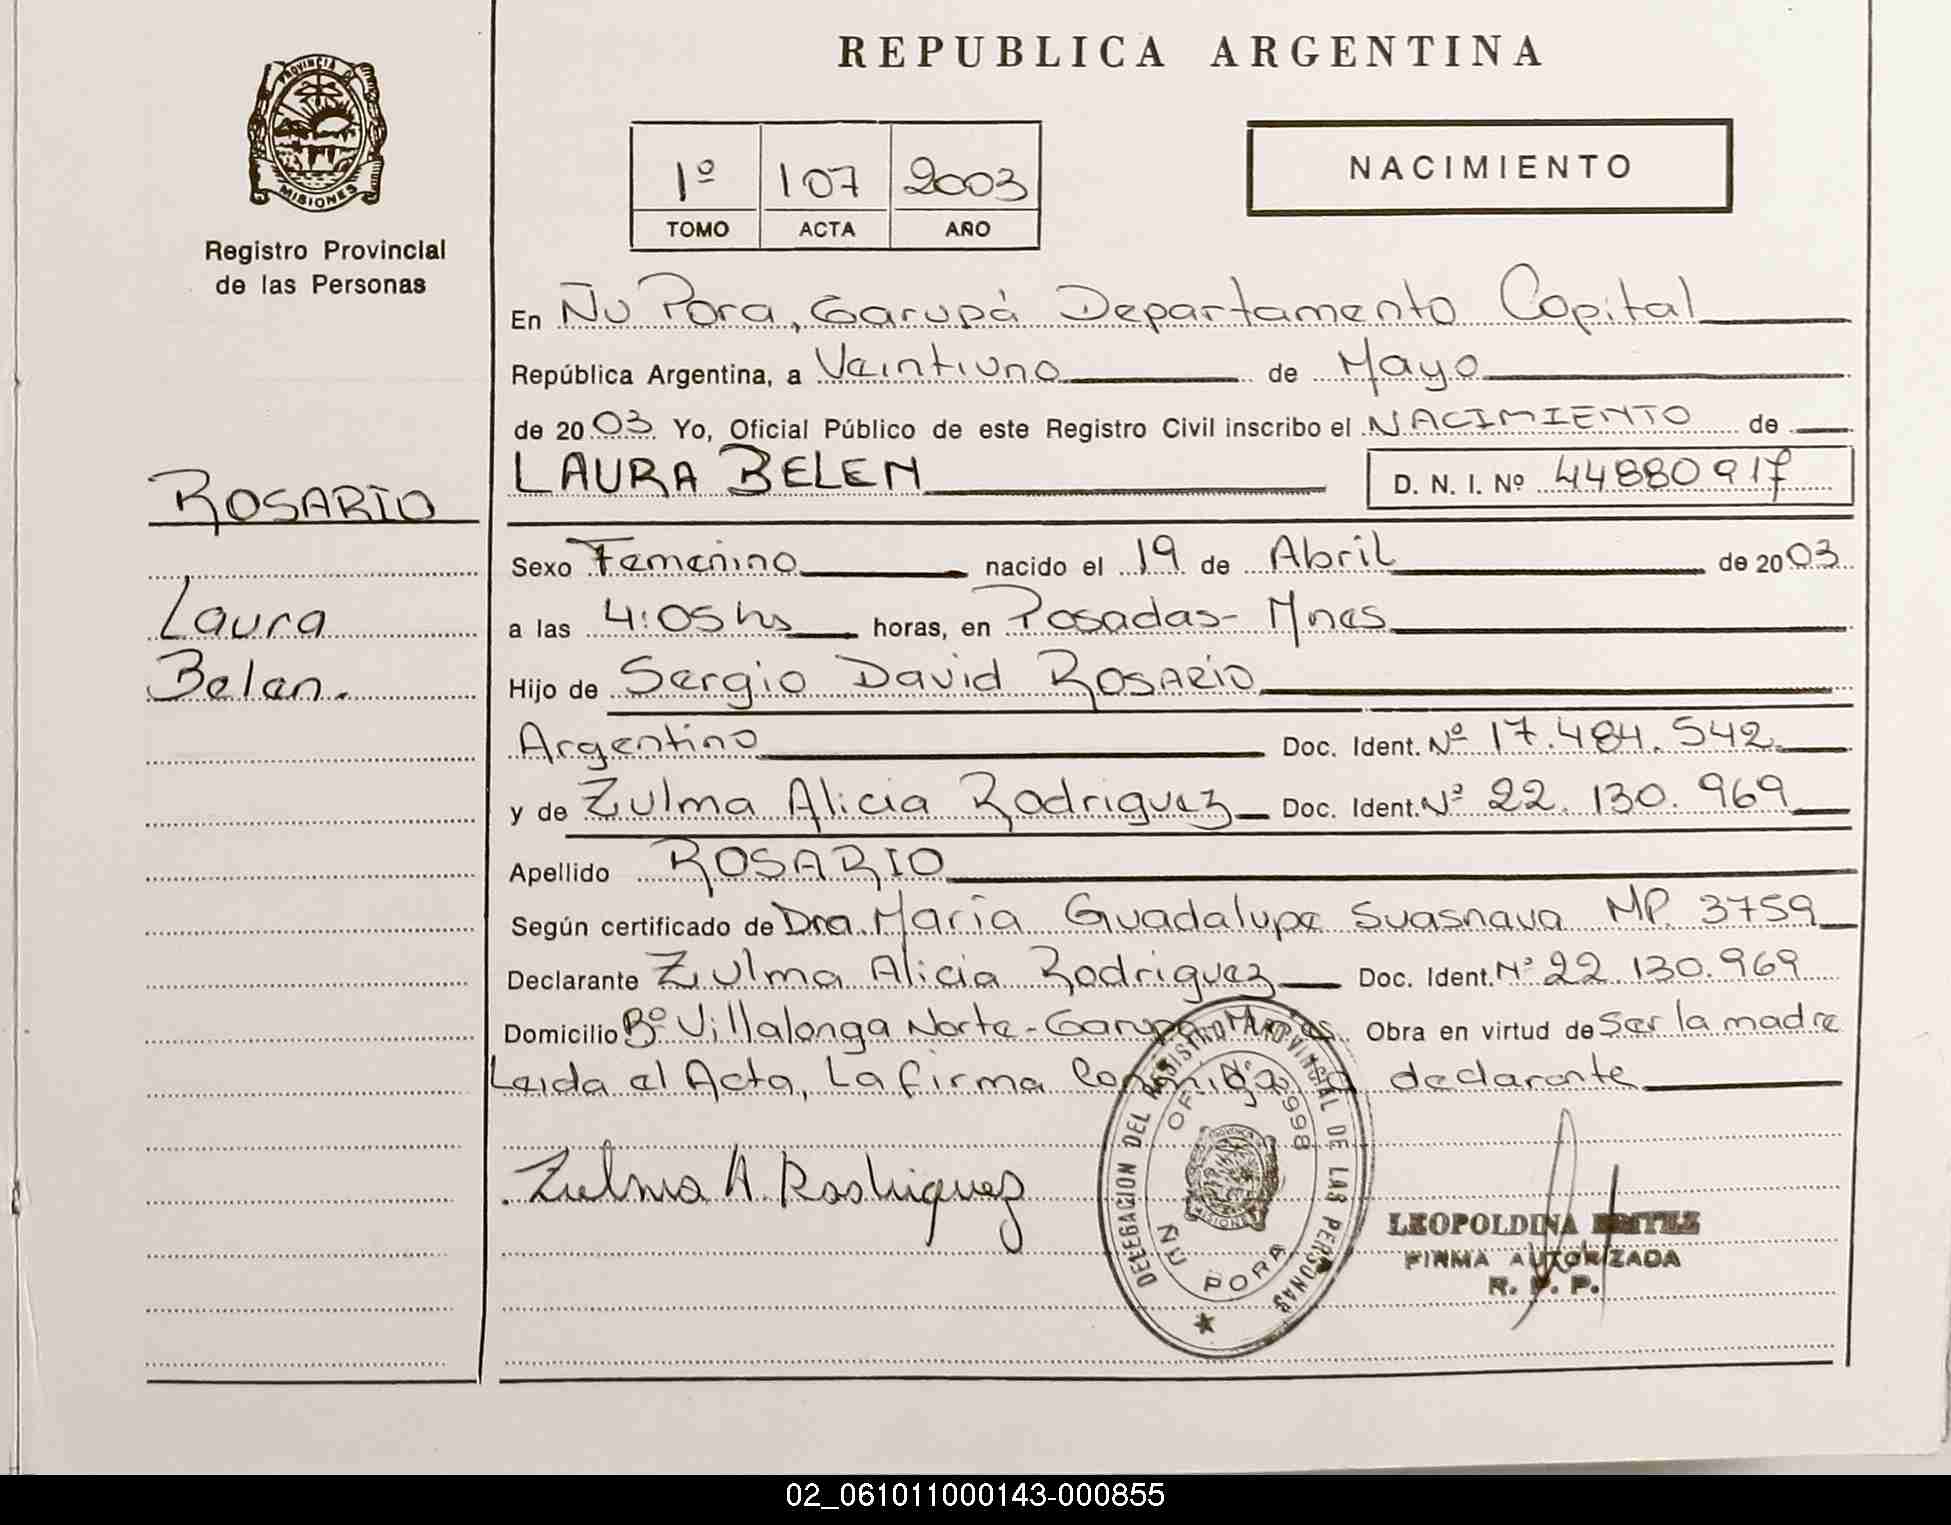 REPUBLICA ARGENTINA
PROVINCIA DE
MISIONES
Registro Provincial
de las Personas
1º 107 2003
TOMO ACTA AÑO
NACIMIENTO
En Ñu Pora, Garupá Departamento Capital
República Argentina, a Veintiuno de Mayo
de 2003 Yo, Oficial Público de este Registro Civil inscribo el NACIMIENTO de
LAURA BELEN D. N. I. Nº 44880917
ROSARIO
Laura
Belen.
Sexo Femenino nacido el 19 de Abril de 2003
a las 4:05 hs horas, en Posadas - Mnes
Hijo de Sergio David ROSARIO
Argentino Doc. Ident. Nº 17.484.542
y de Zulma Alicia Rodriguez Doc. Ident. Nº 22.130.969
Apellido ROSARIO
Según certificado de Dra. María Guadalupe Suasnava MP. 3759
Declarante Zulma Alicia Rodriguez Doc. Ident. Nº 22.130.969
Domicilio Bº Villalonga Norte - Garupa Mnes Obra en virtud de ser la madre
Leida el Acta, La firma Conmigo la declarante
Zulma A. Rodriguez
DELEGACION DEL REGISTRO PROVINCIAL DE LAS PERSONAS
OF. Nº 2998
MISIONES
ÑU PORA
LEOPOLDINA
FIRMA AUTORIZADA
R. P. P.
02_061011000143-000855